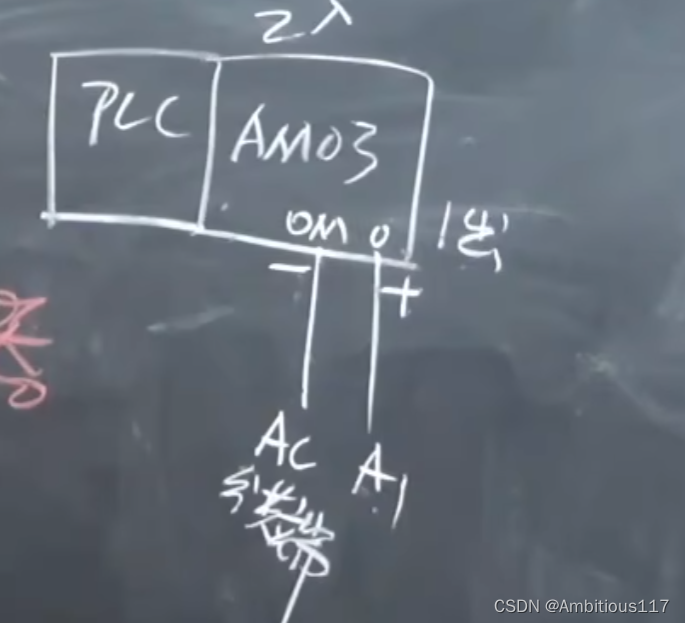 2入
PLC AM03
0M 0 1出
- +
AC A1
CSDN @Ambitious117